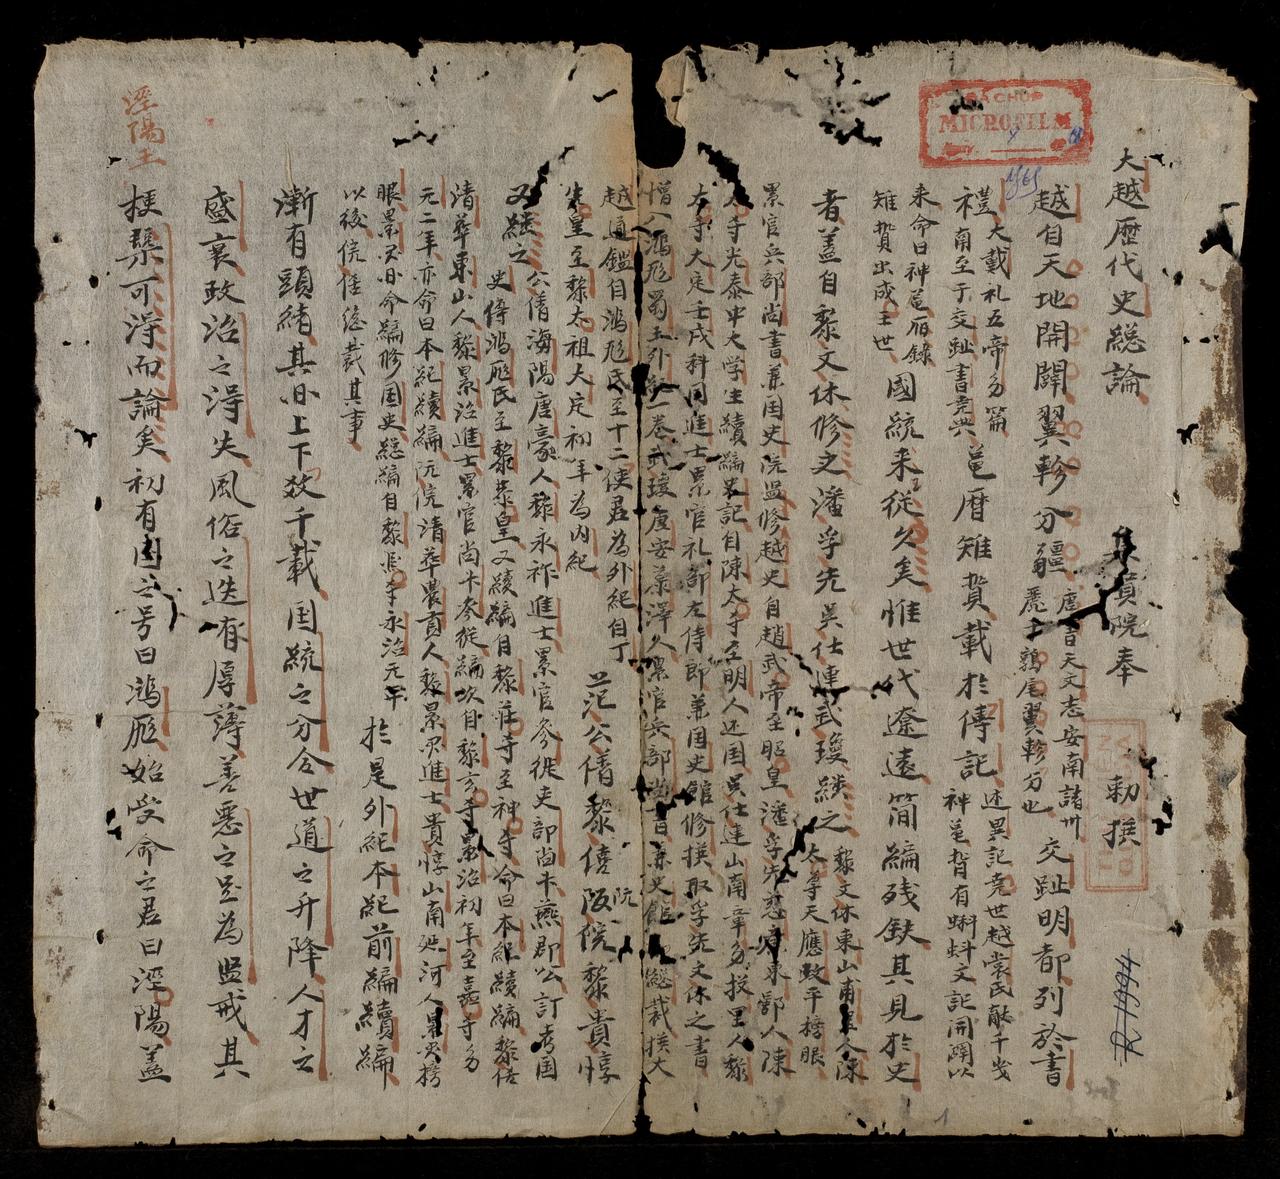 大越歷代史総論
貢院奉
勅撰
越自天地開闢翼軫分疆
唐書天文志安南諸州
鶉尾翼軫分也
交趾明都列於書
禮
大載礼五帝纪篇
南至于交趾書堯典
黿曆雉贄載於傳記
述異記堯世越裳氏献千歲
神黿背有蝌蚪文記開闢以
来命曰神黿曆錄
雉贄出成王世
國統来從久矣惟世代遼遠简編残缺其見於史
者蓋自黎文休修之潘孚先吳仕連武瓊継之
黎文休東山甫里人陳
太寺天應政平榜眼
累官兵部尚書兼国史院监修越史自趙武帝至昭皇潘孚先慈廉東鄂人陳
寺光泰中大学生續編史記自陳太寺至明人还国吳仕連山南章多投里人黎
大寺大定壬戌科同進士累官礼部左侍郎兼国史館修撰取孚先文休之書
增入鴻厖蜀王外紀一卷武瓊唐安慕澤人累官兵部尚書兼史館総裁撰大
越通鑑自鴻厖氏至十二使君為外紀自丁
先皇至黎太祖大定初年為内紀
范公倩黎僖阮院黎貴惇
阮
又継之
公倩海陽唐豪人黎永祚進士累官參從吏部尚书燕郡公訂考国
史傳鴻厖氏至黎恭皇又續編自黎莊寺至神寺命曰本紀續編黎僖
清華東山人黎景治進士累官尚书參從編次自黎玄寺景治初年至嘉寺多
元二年亦命曰本紀續編阮院清華農貢人黎景興進士貴惇山南延河人景興榜
眼景興间命編修国史総編自黎熙寺永治元年
以後院僅総裁其事
於是外紀本紀前編續編
漸有頭緒其间上下数千載国統之分合世道之升降人才之
盛衰政治之得失風俗之迭有厚薄善悪之足為监戒其
梗槩可得而論矣初有国之号曰鴻厖始受命之君曰涇陽蓋
涇陽王
MICROFILM
R 1994
1